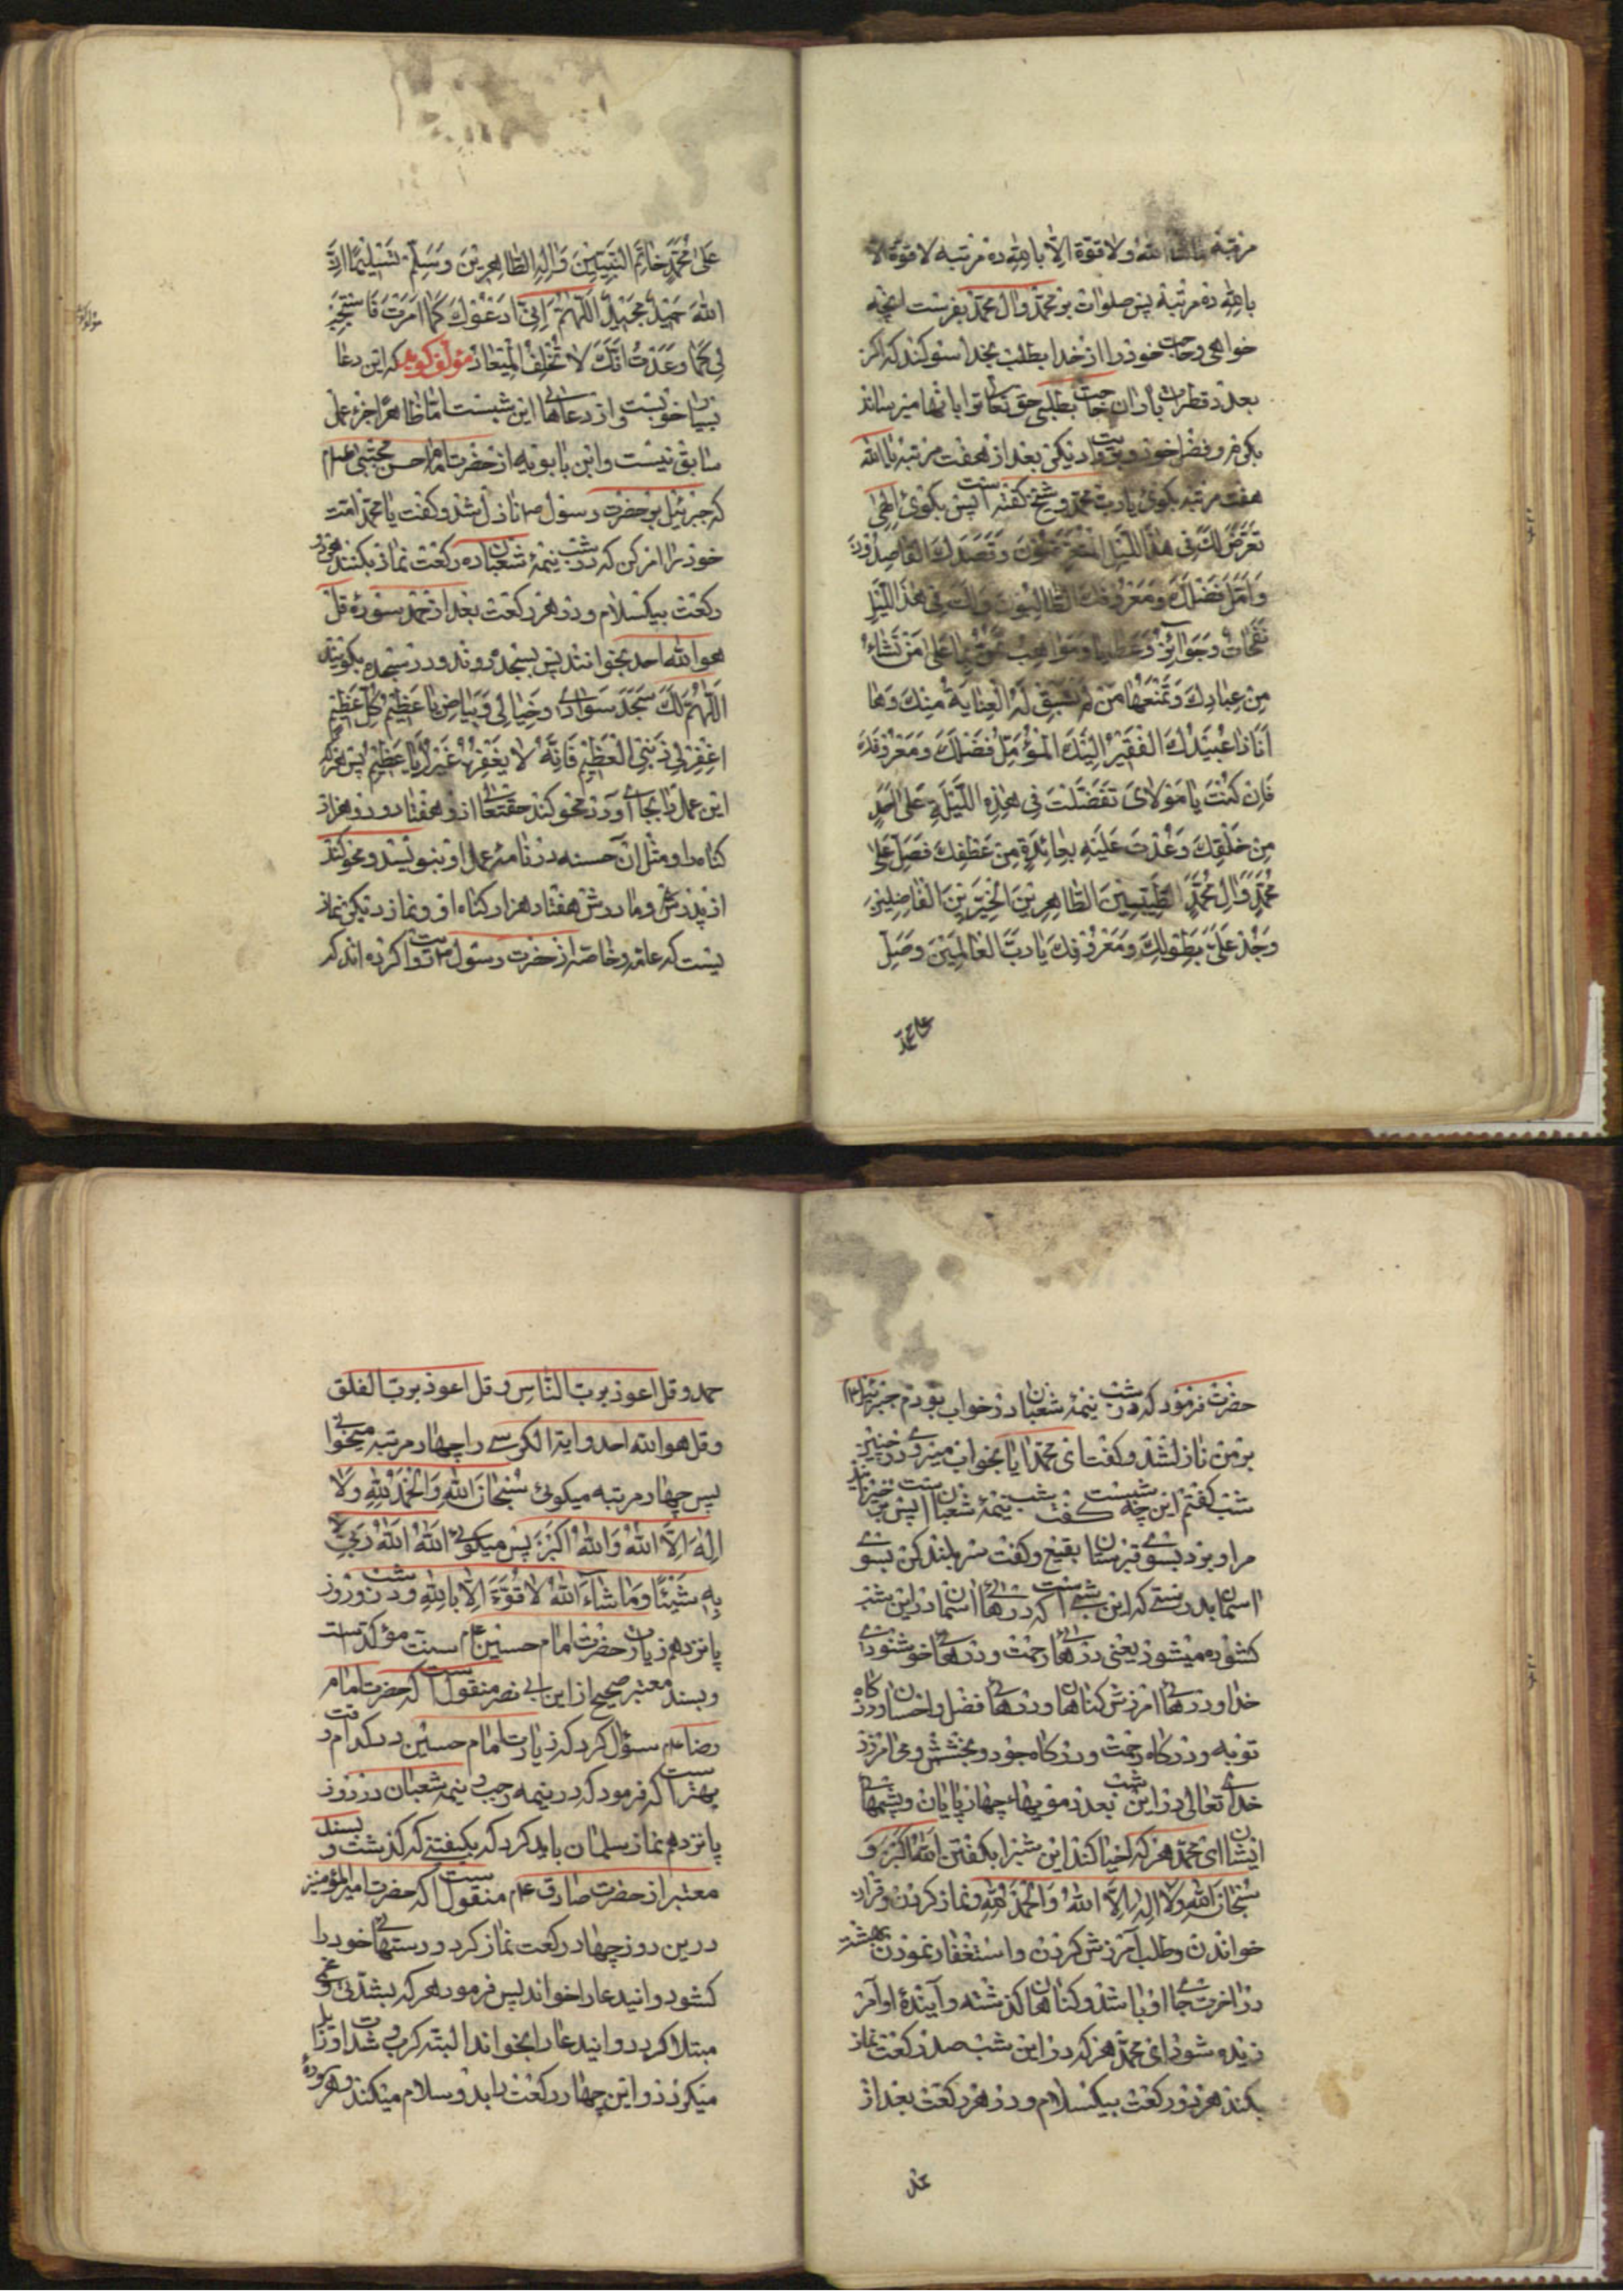 مرتبه ماشاء الله ولا قوّة الّا بالله ده مرتبه لا قوّة الّا
بالله ده مرتبه پس صلوات بر محمّد وال محمّد بفرست انچه
خواهی وحاجت خود را از خدا بطلب بخدا سوکند که اکر
بعدد قطرات باران حاجت بطلبی حق تعالی ترا بانها میرساند
بکرم و فضل خود وبروایت دیکر بعد از هفت مرتبه یا الله
هفت مرتبه بکوی یا ربّ محمّد وشیخ کفته است پس بکوی الهی
تَعَرَّضَ لَكَ فی هذَا اللَّيْلِ الْمُتَعَرِّضُونَ وَقَصَدَكَ الْقاصِدُونَ
وَاَمَّلَ فَضْلَكَ وَمَعْرُوفَكَ الطّالِبُونَ وَلَكَ فی هذَا اللَّيْلِ
نَفَحاتٌ وَجَوائِزُ وَعَطايا وَمَواهِبُ تَمُنُّ بِها عَلی مَنْ تَشاءُ
مِنْ عِبادِكَ وَتَمْنَعُها مَنْ لَمْ تَسْبِقْ لَهُ الْعِنايَةُ مِنْكَ وَها
اَنَا ذا عُبَيْدُكَ الْفَقيرُ اِلَيْكَ الْمُؤَمِّلُ فَضْلَكَ وَمَعْرُوفَكَ
فَاِنْ كُنْتَ يا مَوْلایَ تَفَضَّلْتَ فی هذِهِ اللَّيْلَةِ عَلی اَحَدٍ
مِنْ خَلْقِكَ وَعُدْتَ عَلَيْهِ بِعائِدَةٍ مِنْ عَطْفِكَ فَصَلِّ عَلی
مُحَمَّدٍ وَّالِ مُحَمَّدٍ الطَّيِّبينَ الطّاهِرينَ الْخَيِّرينَ الْفاضِلينَ
وَجُدْ عَلَیَّ بِطَولِكَ وَمَعْرُوفِكَ يا رَبَّ الْعالَمينَ وَصَلِّ
علی محمّد
عَلی مُحَمَّدٍ خاتَمِ النَّبِيّينَ وَالِهِ الطّاهِرينَ وَسَلِّمْ تَسْليمًا اِنَّ
اللهَ حَميدٌ مَجيدٌ اَللّهُمَّ اِنّی اَدْعُوكَ كَما اَمَرْتَ فَاسْتَجِبْ
لی كَما وَعَدْتَ اِنَّكَ لا تُخْلِفُ الْميعادَ مؤلف کوید که این دعا
بسیار خوبست و از دعاهای این شبست امّا ظاهراً جزء عمل
سابق نیست وابن بابویه از حضرت امام حسن مجتبی
که جبرئیل بر حضرت رسول نازل شد وکفت یا محمّد امّت
خود را امر کن که در شب نیمهٔ شعبان ده رکعت نماز بکنند هر دو
رکعت بیکسلام و در هر رکعت بعد از حمد سورهٔ قل
هو الله احد بخوانند پس بسجده روند و در سجده بکویند
اَللّهُمَّ لَكَ سَجَدَ سَوادی وَخَیالی وَبَیاضی یا عَظیمُ كُلِّ عَظیمٍ
اِغْفِرْ لی ذَنْبِیَ الْعَظیمَ فَاِنَّهُ لا یَغْفِرُهُ غَیْرُكَ یا عَظیمُ پس هر که
این عمل را بجا آورد محو کند حقتعالی از او هفتاد و دو هزار
کناه را ومثل آن حسنه در نامهٔ عمل او بنویسد و محو کند
از پدرش و مادرش هفتاد هزار کناه او و نماز دیکر نماز
یست که عامّه و خاصّه از حضرت رسول روایت کرده اند که
حضرت فرمود که در شب نیمهٔ شعبان در خواب بودم جبرئیل
بر من نازل شد و کفت ای محمّد ایا بخواب میروی در چنین
شب کفتم این چه شبیست کفت شب نیمهٔ شعبان است برخیز پس
مرا برد بسوی قبرستان بقیع و کفت سر بلند کن بسوی
اسمان بدرستی که این شبی است که درهای اسمان در این شب
کشوده میشود یعنی درهای رحمت و درهای خوشنودی
خدا و درهای امرزش کناهان و درهای فضل و احسان و درکاه
توبه و درکاه رحمت و درکاه جود و بخشش و می امرزد
خدای تعالی در این شب بعدد مویهای چهارپایان و پشمهای
ایشان ای محمّد هر که احیا کند این شب را بکفتن الله اکبر و
سبحان الله ولا اله الّا الله والحمد لله و نماز کردن و قران
خواندن و طلب آمرزش کردن و استغفار نمودن بهشت
در اخرت جای او باشد و کناهان کذشته و آیندهٔ او آمر
زیده شود ای محمّد هر که در این شب صد رکعت نماز
بکند هر دو رکعت بیکسلام و در هر رکعت بعد از
حمد
حمد و قل اعوذ بربّ النّاس و قل اعوذ بربّ الفلق
وقل هو الله احد و ایة الکرسی را چهار مرتبه میخوانی
پس چهار مرتبه میکوئی سُبْحانَ اللهِ وَالْحَمْدُ لِلّهِ وَلا
اِلهَ اِلاَّ اللهُ وَاللهُ اَكْبَرُ پس میکوئی اللهُ اللهُ رَبّی لا
بِهِ شَیْئًا وَما شاءَ اللهُ لا قُوَّةَ اِلّا بِاللهِ و در شب و روز
پانزدهم زیارت حضرت امام حسین سنّت مؤکّد است
وبسند معتبر صحیح از ابن ابی نصر منقول است که حضرت امام
رضا سؤال کرد که زیارت امام حسین در کدام وقت
بهتر است که فرمود که در نیمه رجب و نیمه شعبان و در روز
پانزدهم نماز سلمان باید کرد که بکیفیتی که کذشت و بسند
معتبر از حضرت صادق منقول است که حضرت امیر المؤمنین
درین روز چهار رکعت نماز کرد و دستهای خود را
کشود و انیدعا را خواند پس فرمود هر که بشدّتی و غمی
مبتلا کردد و انیدعا را بخواند البتّه کرب و شدّت او زایل
میکردد و این چهار رکعت را بدو سلام میکند و هر سوره